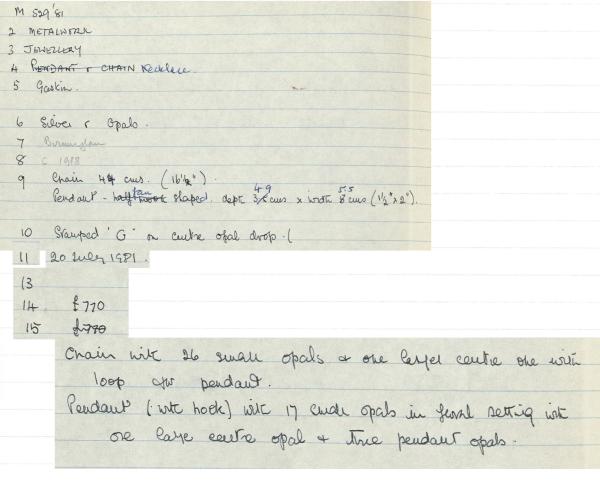 M 529'81
2 METALWORK
3 JEWELLERY
4 PENDANT & CHAIN Necklace.
5 Gaskin.
6 Silver & Opals.
7 Birmingham
8 C 1918
9 Chain 44 cms. (16½")
Pendant - half moon fan shaped. dept 3.8 4.9 cms x width 8 5.5 cms (1½" x 2").
10 Stamped 'G' on centre opal drop.(
11 20 July 1981.
13
14 £770
15 £770
Chain with 26 small opals & one larger centre one with
loop for pendant.
Pendant (with hook) with 17 crude opals in floral setting with
one large centre opal & three pendant opals.